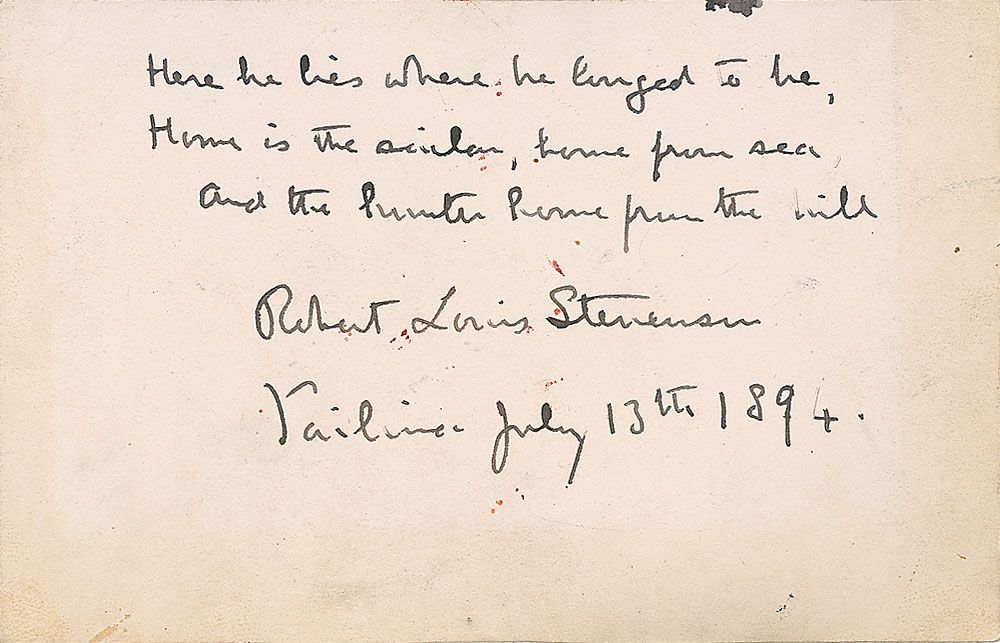 Here he lies where he longed to be,
Home is the sailor, home from sea
And the hunter home from the hill
Robert Louis Stevenson
Vailima July 13th 1894.